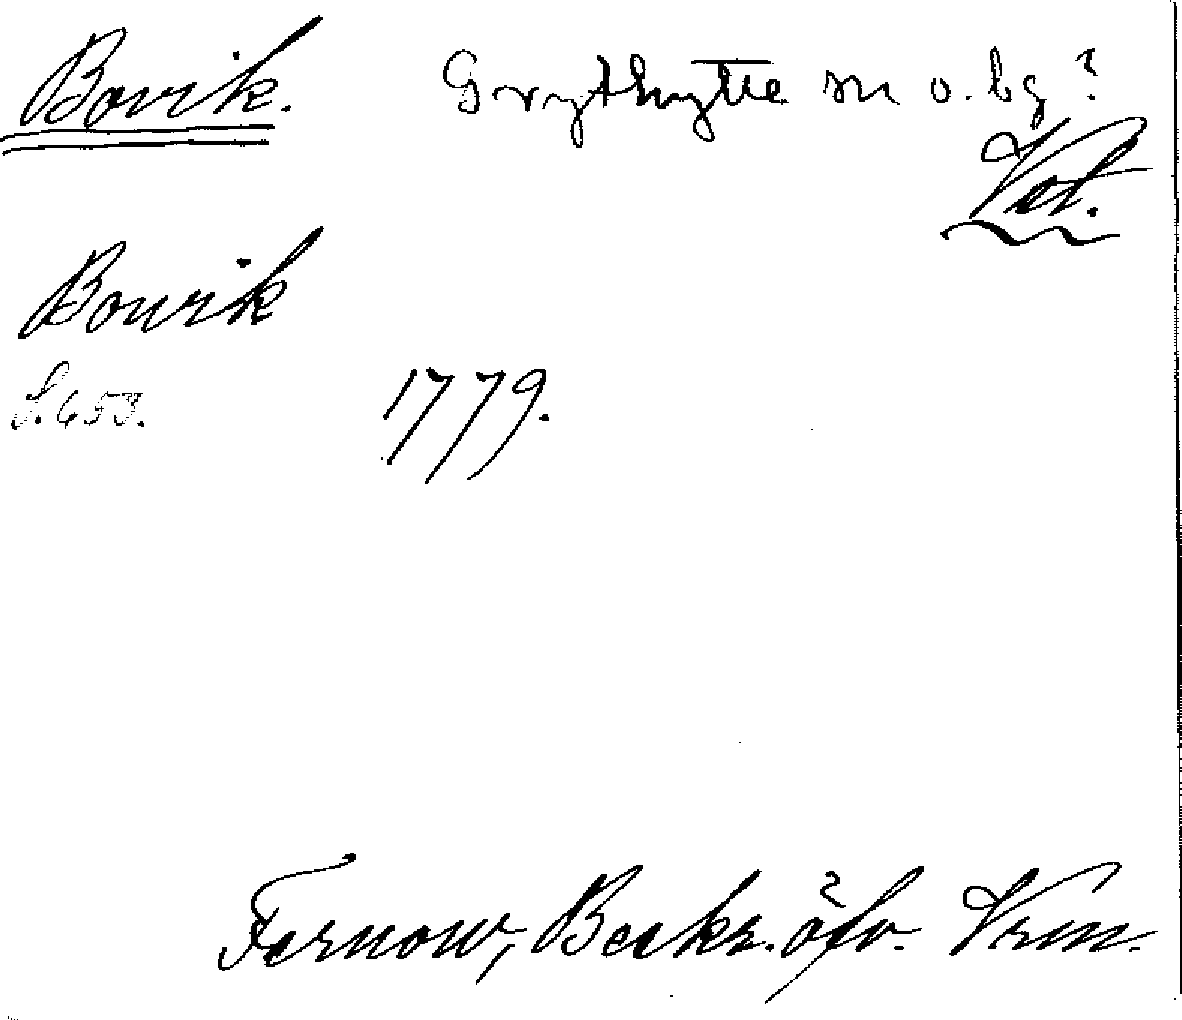 Bovik. Grythytte sn o. bg?
Vstm.
Bowik
S. 653. 1779.
Fernow, Beskr. öfv. Vrm.